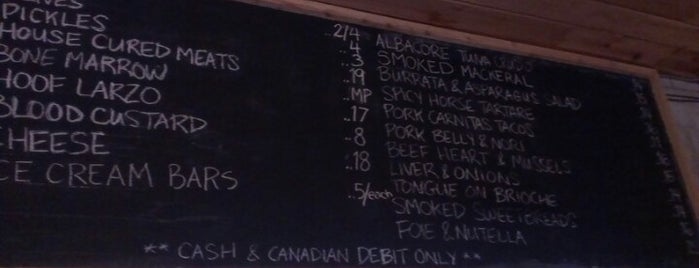 PICKLES 2/4
HOUSE CURED MEATS ..4
BONE MARROW ..3
HOOF LARZO ..19
BLOOD CUSTARD ..MP
CHEESE ..17
ICE CREAM BARS ..8
..18
..5/each
ALBACORE TUNA
SMOKED MACKERAL
BURRATA & ASPARAGUS SALAD
SPICY HORSE TARTARE
PORK CARNITAS TACOS
PORK BELLY & NORI
BEEF HEART & MUSSELS
LIVER & ONIONS
TONGUE ON BRIOCHE
SMOKED SWEETBREADS
FOIE & NUTELLA
** CASH & CANADIAN DEBIT ONLY **